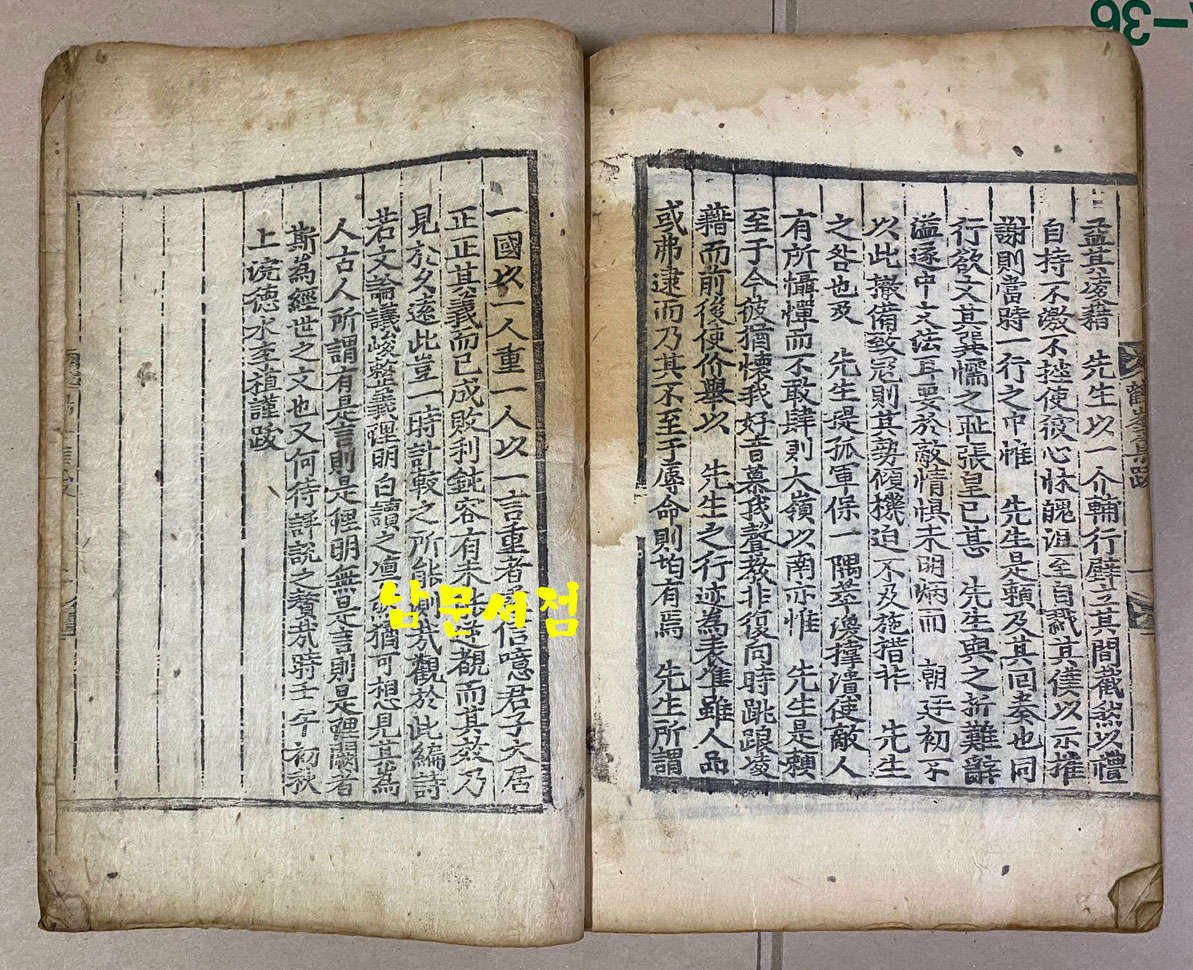 益其凌藉 先生以一介輔行壁立其間截然以禮
自持不激不挫使彼心怵醜沮至自戮其僕以示摧
謝則當時一行之中惟 先生是賴及其回奏也同
行欲文其巽懦之耻張皇已甚 先生與之折難辭
溢遂中文法耳要於敵情惧未明炳而 朝廷初不
以此撤備致冦則其勢傾機迫不及施措非 先生
之咎也及 先生提孤軍保一隅萃渙撑潰使敵人
有所懾憚而不敢肆則大嶺以南亦惟 先生是賴
至于今彼猶懷我好音慕我聲教非復向時跳踉凌
藉而前後使价舉以 先生之行迹為表準雖人品
或弗逮而乃其不至于辱命則怕有焉 先生所謂
一國以一人重一人以一言重者信噫君子大居
正正其義而已成敗利鈍容有未逆覩而其效乃
見於久遠此豈一時計較之所能測哉觀於此編詩
若文論議峻整義理明白讀之凛猶可想見其為
人古人所謂有是言則是理明無是言則是理闕者
斯為經世之文也又何待評說之贅哉時壬午初秋
上浣德水李植謹跋
鶴峯集跋
남문서점
36